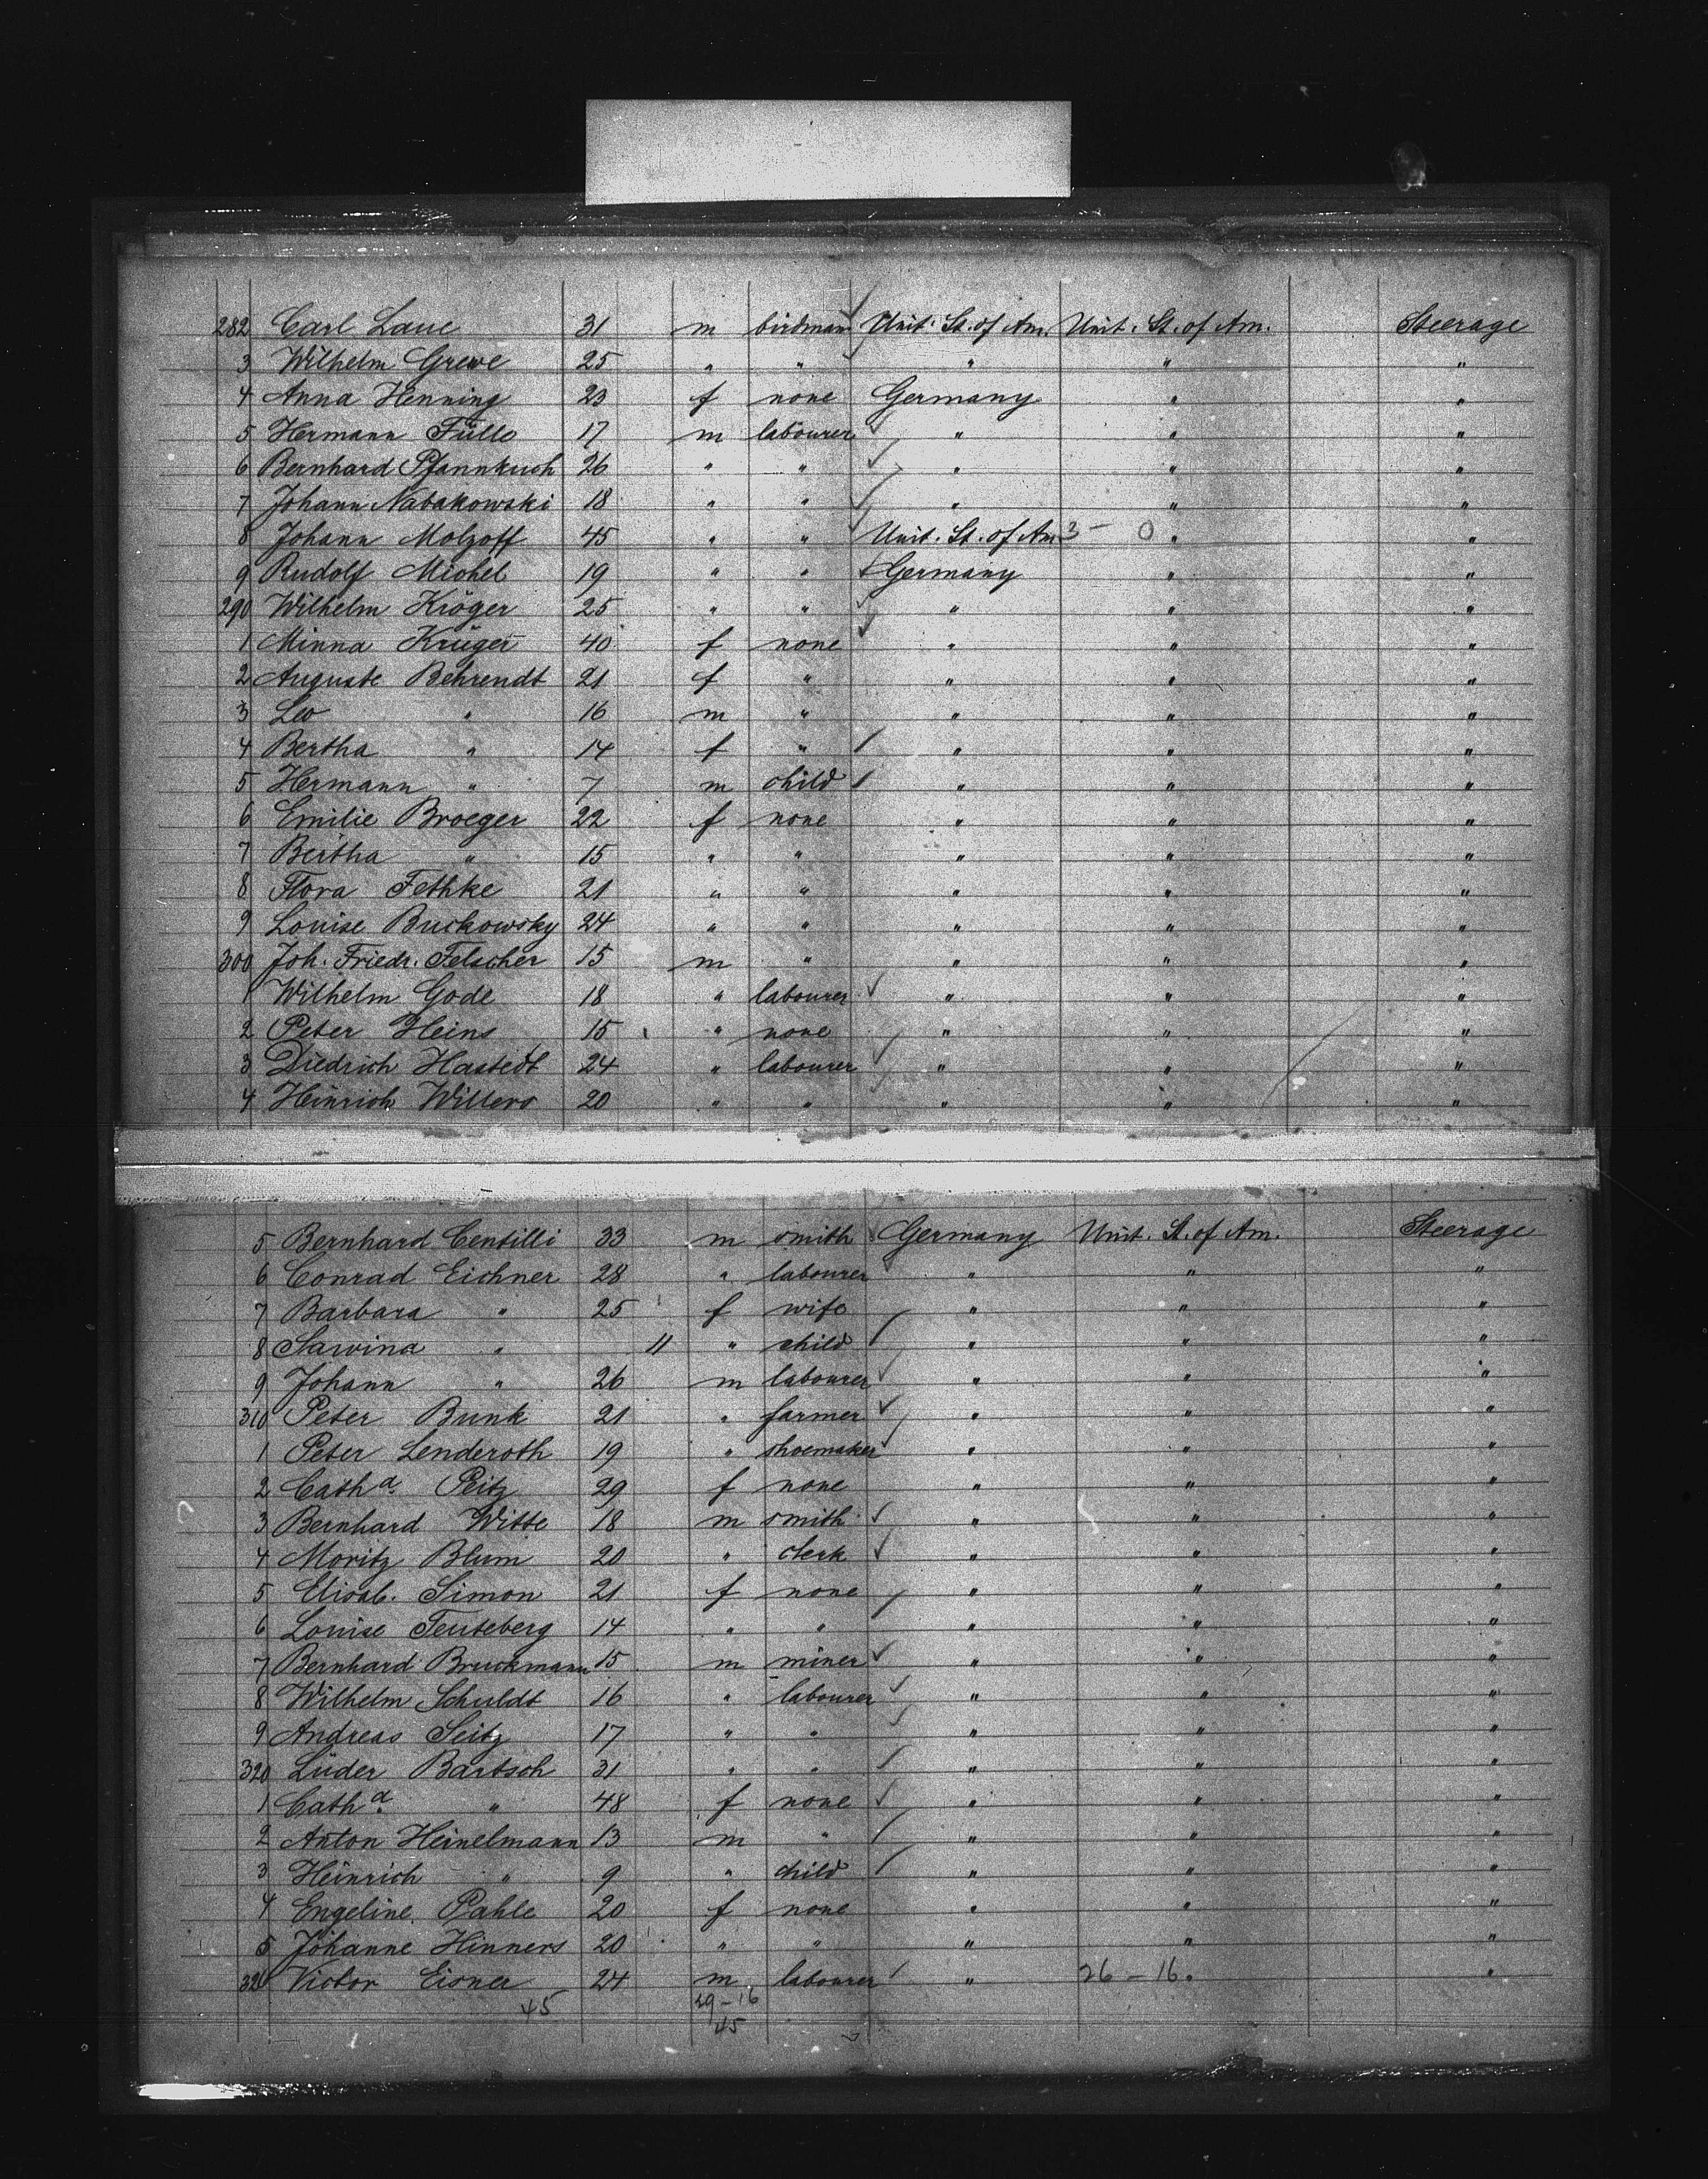 282 Carl Laue 31 m birdman Unit. St. of Am. Unit. St. of Am. Steerage
3 Wilhelm Grewe 25 " " " " "
4 Anna Henning 23 f none Germany " "
5 Hermann Fülle 17 m labourer " " "
6 Bernhard Pfannkuch 26 " " " " "
7 Johann Nabakowski 18 " " " " "
8 Johann Molzoff 45 " " Unit. St. of Am 3 - 0 " "
9 Rudolf Michel 19 " " Germany " "
290 Wilhelm Kröger 25 " " " " "
1 Minna Krüger 40 f none " " "
2 Auguste Behrendt 21 f " " " "
3 Leo " 16 m " " " "
4 Bertha " 14 f " " " "
5 Hermann " 7 m child " " "
6 Emilie Broeger 22 f none " " "
7 Bertha " 15 " " " " "
8 Flora Fethke 21 " " " " "
9 Louise Buckowsky 24 " " " " "
300 Joh. Friedr. Felscher 15 m " " " "
1 Wilhelm Gode 18 " labourer " " "
2 Peter Heins 15 " none " " "
3 Diedrich Hastedt 24 " labourer " " "
4 Heinrich Willers 20 " " " " "
5 Bernhard Centilli 33 m smith Germany Unit. St. of Am. Steerage
6 Conrad Eichner 28 " labourer " " "
7 Barbara " 25 f wife " " "
8 Sarvina " 11 " child " " "
9 Johann " 26 m labourer " " "
310 Peter Bunk 21 " farmer " " "
1 Peter Lenderoth 19 " shoemaker " " "
2 Catha. Peitz 29 f none " " "
3 Bernhard Witte 18 m smith " " "
4 Moritz Blum 20 " clerk " " "
5 Elisab. Simon 21 f none " " "
6 Louise Teuteberg 14 " " " " "
7 Bernhard Bruckmann 15 m miner " " "
8 Wilhelm Schuldt 16 " labourer " " "
9 Andreas Seitz 17 " " " " "
320 Lüder Bartsch 31 " " " " "
1 Catha. " 48 f none " " "
2 Anton Heinelmann 13 m " " " "
3 Heinrich " 9 " child " " "
4 Engeline Pahle 20 f none " " "
5 Johanne Hinners 20 " " " " "
326 Victor Eisner 24 m labourer " 26 - 16. "
45 29 - 16
45